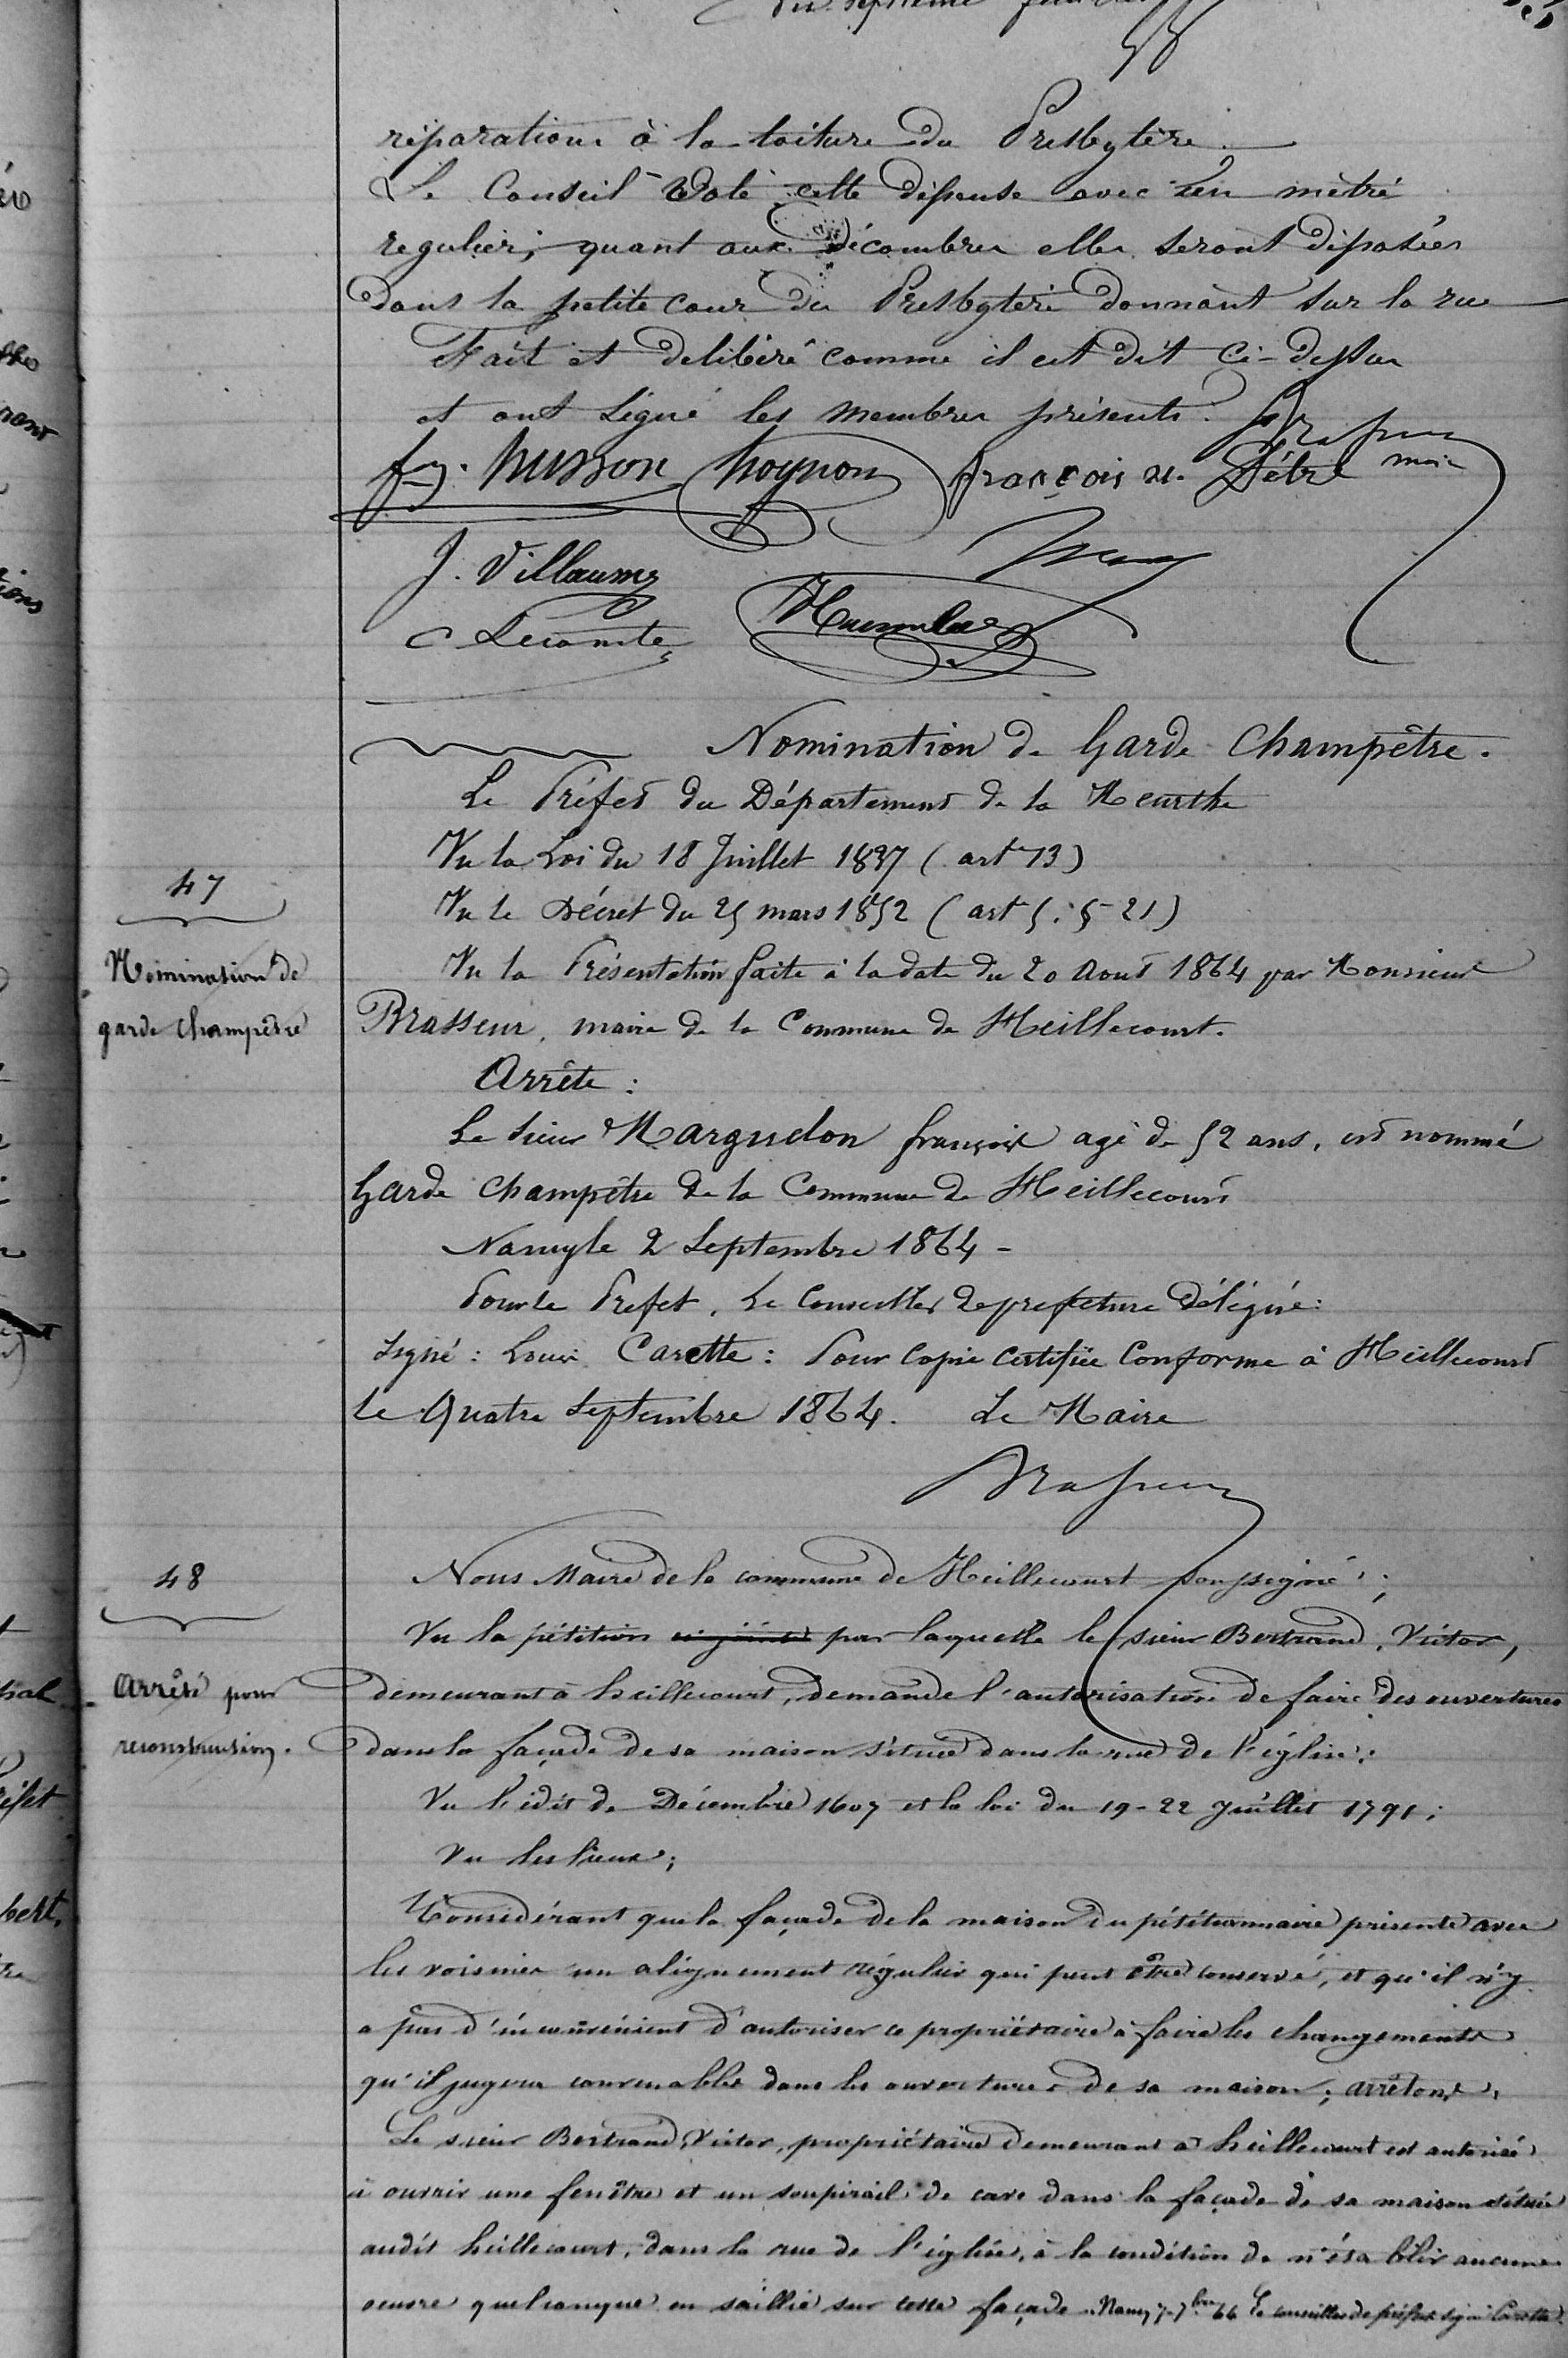 du septième feuillet
réparations à la toiture du Presbytère.
Le Conseil vote cette dépense avec un métré
regulier; quant aux décombres elles seront déposées
dans la petite cour du Presbytère donnant sur la rue
Fait et delibéré comme il est dit Ci-dessus
et ont signé les membres présents. Brasseur
fs. husson hoÿnon françois n. Détré maire
J. Villaume
C Lecomte
Nomination de Garde Champêtre.
Le Préfet du Département de la Meurthe
47
Vu la Loi du 18 Juillet 1837 (art 13)
Vu le Décret du 25 mars 1852 (art 5. § 21)
Nomination de
garde Champêtre
Vu la Présentation faite à la date du 20 Aout 1864 par Monsieur
Brasseur, maire de la Commune de Heillecourt.
Arrête :
Le sieur Margudon françois agé de 52 ans, est nommé
Garde Champêtre de la Commune de Heillecourt
Nancy le 2 Septembre 1864 -
Pour le Prefet, Le Conseiller de prefecture Délégué:
Signé : Louis Carette : Pour Copie Certifiée Conforme à Heillecourt
le Quatre Septembre 1864. Le Maire
Brasseur
48
Arrêté pour
reconstruction.
Nous Maire de la commune de Heillecourt soussigné;
Vu la pétition ci-jointe par laquelle le sieur Bertrand, Victor,
demeurant à heillecourt, demande l'autorisation de faire des ouvertures
dans la façade de sa maison située dans la rue de l'église;
Vu l'édit de Décembre 1607 et la loi du 19-22 Juillet 1791;
Vu les lieux;
Considérant que la façade de la maison du pétitionnaire présente avec
les voisines un alignement régulier qui peut être conservé, et qu'il n'y
a pas d'inconvénient d'autoriser ce propriétaire à faire les changements
qu'il jugera convenables dans les ouvertures de sa maison; arrêtons,
Le sieur Bertrand, Victor, propriétaire demeurant à heillecourt est autorisé
à ouvrir une fenêtre et un soupirail de cave dans la façade de sa maison située
audit heillecourt, dans la rue de l'église, à la condition de n'établir aucune
oeuvre quelconque en saillie sur cette façade. Nancy 7 7bre 64 Le conseiller de préfect signé Carette.